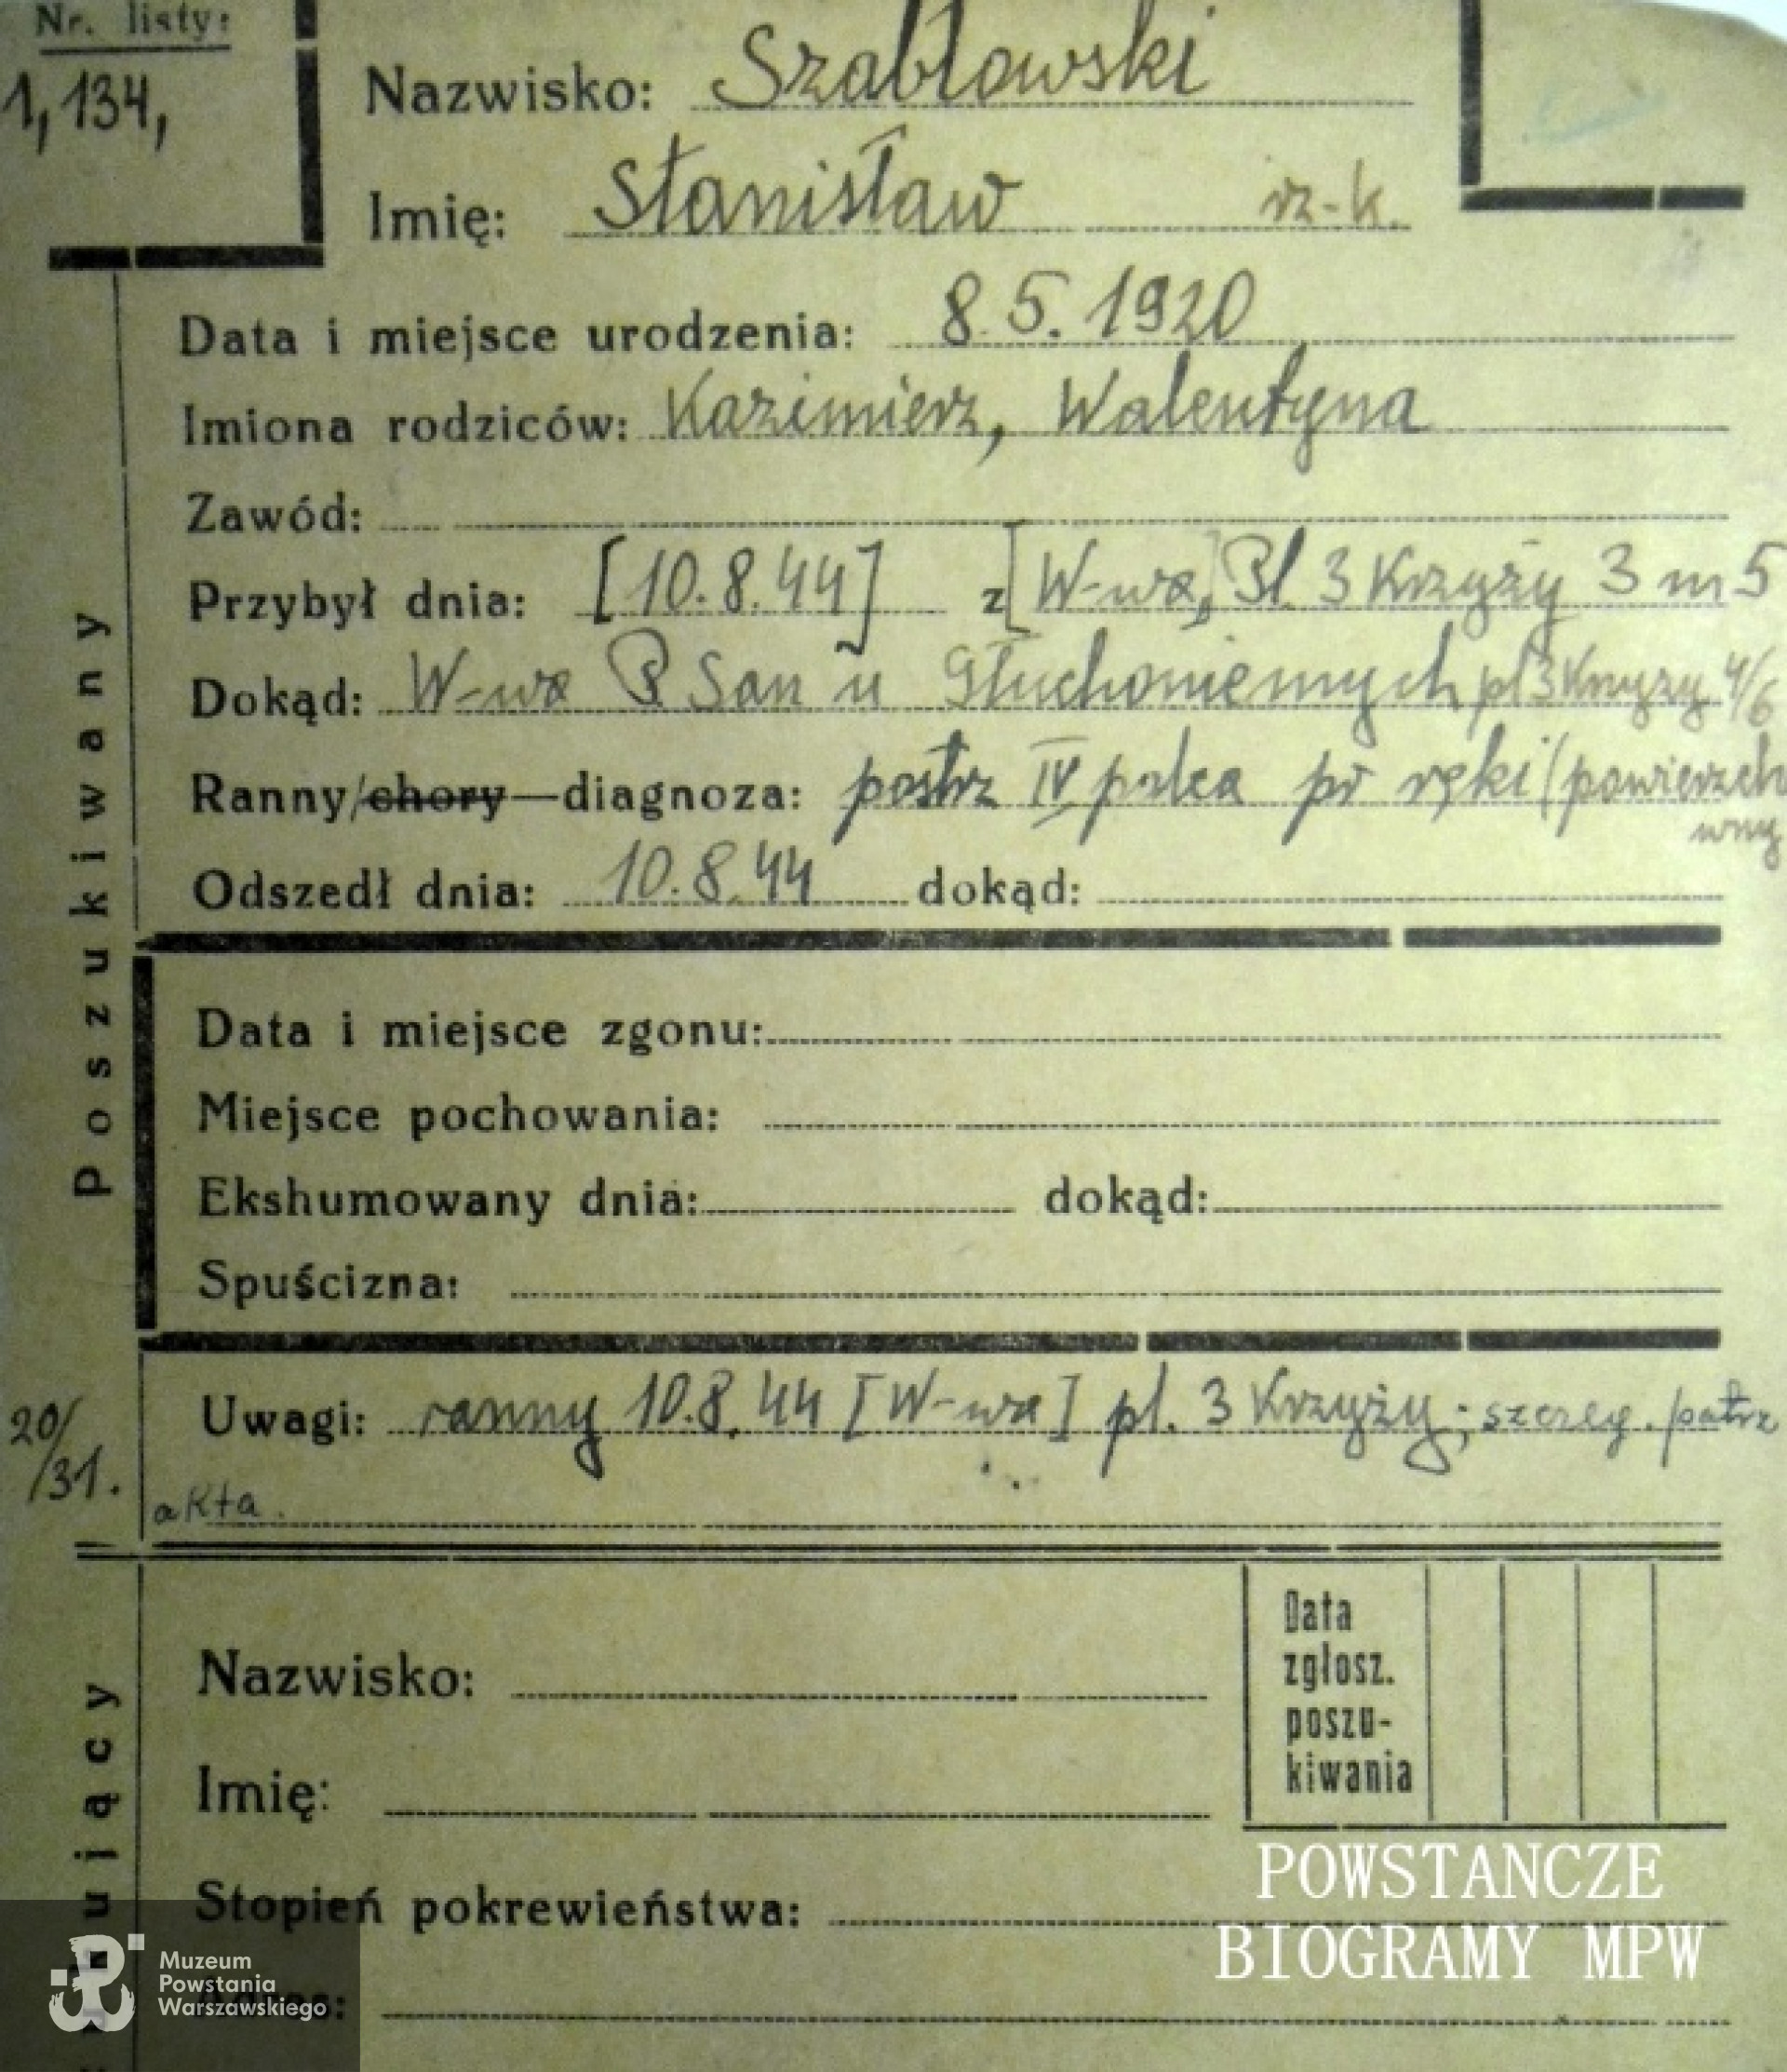 Nr. listy:
1, 134,
Nazwisko: Szabłowski
Imię: Stanisław rz-k.
Data i miejsce urodzenia: 8.5.1920
Imiona rodziców: Kazimierz, Walentyna
Zawód:
Przybył dnia: [10.8.44] z [W-wa, Pl. 3 Krzyży 3 m 5
Dokąd: W-wa P San u Głuchoniemych pl 3 Krzyży 4/6
Ranny/chory—diagnoza: postrz IV palca pr ręki (powierzch
wny
Odszedł dnia: 10.8.44 dokąd:
Poszukiwany
Data i miejsce zgonu:
Miejsce pochowania:
Ekshumowany dnia: dokąd:
Spuścizna:
20/31.
Uwagi: ranny 10.8.44 [W-wa] pl. 3 Krzyży; szereg. /patrz
akta.
Nazwisko:
Imię:
Data
zgłosz.
poszu-
kiwania
ujący
Stopień pokrewieństwa:
POWSTANCZE
BIOGRAMY MPW
Muzeum
Powstania
Warszawskiego